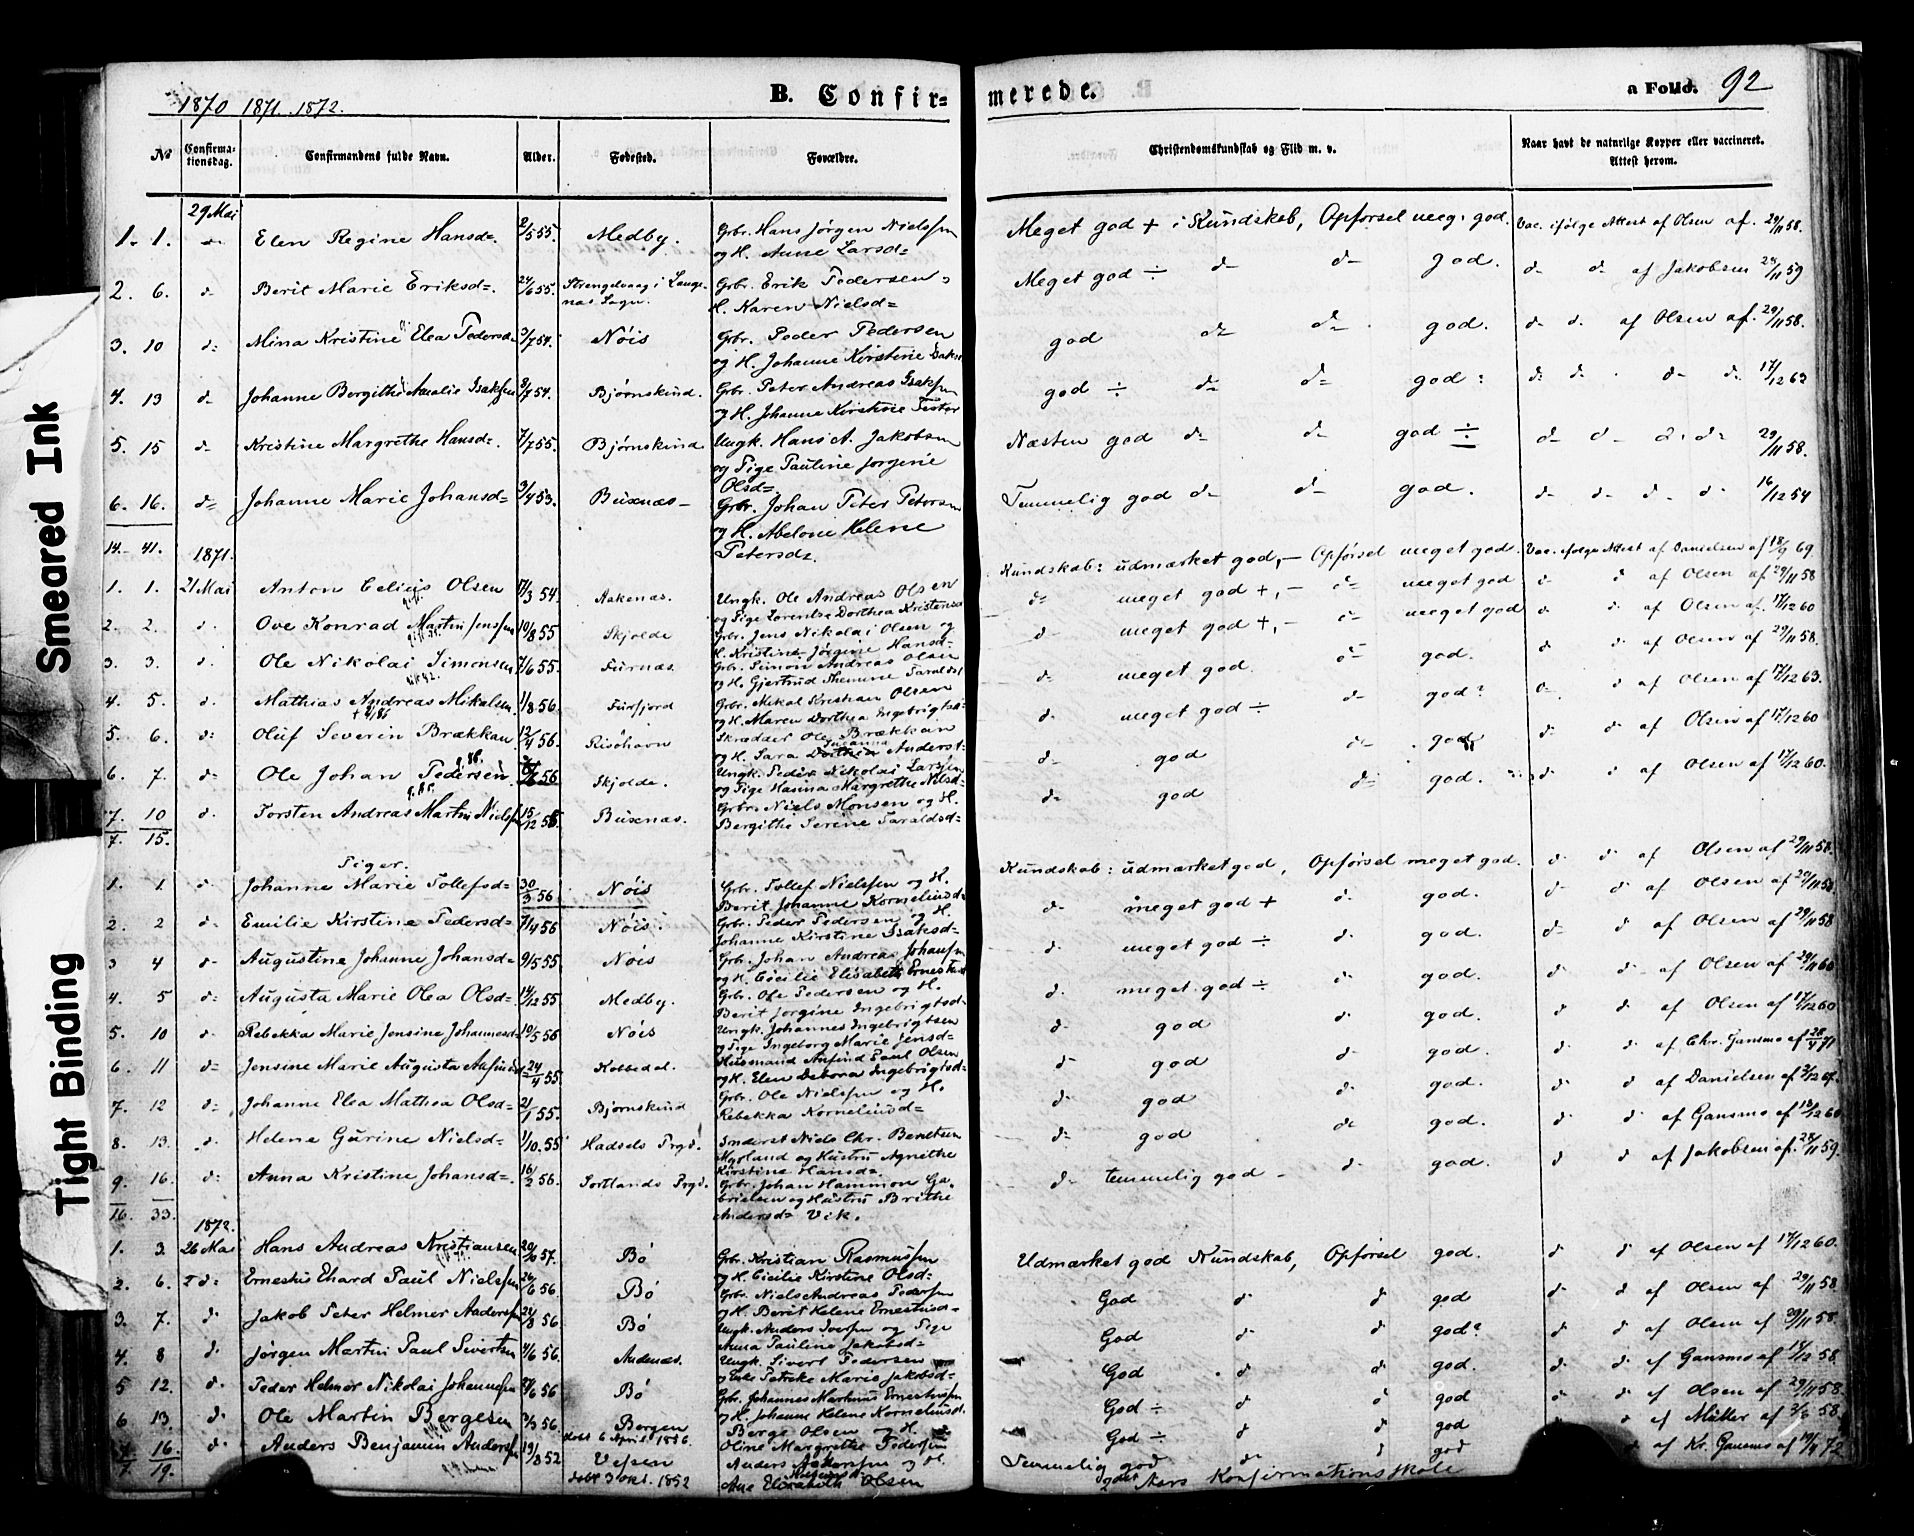 Smeared Ink
Tight Binding
1870 1871. 1872.
B. Confir=
merede.
a Folio. 92
No
Confirma-
tionsdag.
Confirmandens fulde Navn.
Alder.
Fødested.
Forældre.
Christendomskundskab og Flid m. v.
Naar havt de naturlige Kopper eller vaccineret.
Attest herom.
29 Mai
1. 1. Elen Regine Hansd= 2/5 55. Medby. Grb. Hans Jørgen Nielssen Meget god + i Kundskab, Opførsel meg. god. Vac. ifølge Attest af Olsen af 29/11 58.
og H. Anne Larsd=
2. 6. d= Berit Marie Eriksd=. 24/6 55. Strengelvaag i Lange- Grb. Erik Pedersen Meget god ÷ d= d= god. d= d= af Jakobsen 28/11 59
nes Sogn. H. Karen Nielsd=
3. 10 d= Mina Kristine Elea Pedersd. 3/7 54. Nöis Grb. Peder Pedersen god d= d= god. d= d. af Olsen af 29/11 58.
og H. Johanne Kirstine
4. 13 d= Johanne Borgithe Amalie Isaksen 3/7 54. Bjørnskind. Grb. Peter Andreas Isaksen god ÷ d= d= god: d= d= d= d= 17/12 63
og H. Johanne Kirstine
5. 15 d= Kristine Margrethe Hansd=. 7/7 55. Bjørnskind Ungk. Hans A. Jakobsen Næsten god d= d= god ÷ d= d= d= d= 29/11 58.
og Pige Pauline Jørgine
Olsd=
6. 16. d= Johanne Marie Johansd= 3/4 53. Buxnæs Grb. Johan Peter Petersen Temmelig god d= d= god. d= d= d= d= 16/12 54
og H. Abelone Helene
14. 41. 1871. Petersd=.
Kundskab: udmærket god, – Opførsel meget god. Vac. ifølge Attest af Danielsen af 18/9 69.
1. 1. 21 Mai Anton Olsen 17/3 54. Aakenæs. Ungk. Ole Andreas Olsen d= meget god +, – d= meget god d= d af Olsen af 29/11 58
og Pige Lorentse Dorthea Kristensd
2. 2. d. Ove Konrad Martin Jenssen 10/8 55 Skjolde Grb. Jens Nikolai Olsen og d= meget god +, – d= meget god d= d. af Olsen af 17/12 60
H. Kristine Jørgine Hansd=
3. 3. d. Ole Nikolai Simonsen 7/6 55. Furnæs Grb. Simon Andreas Olsen d= meget god. d= god. d= d. af Olsen af 29/11 58.
og H. Gjertrud
4. 5. d. Mathias Andreas Mikalsen 1/8 56. Fürfjord Grb. Mikal Kristian Olsen d= meget god ÷ d= god? d= d af Olsen af 17/12 63.
og H. Maren Dorthea Ingebrigtsd=
5. 6. d= Oluf Severin Brækkan 12/4 56. Risöhavn Skrædder Ole Brækkan d= god d= god d= d. af Olsen af 17/12 60
og H. Sara Susanna Andersd=
6. 7. d= Ole Johan Pedersen 56 Skjolde. Ungk. Peder Nikolai Larssen d= god d= god. d= d. af Olsen af 17/12 60.
og Pige Hanna Margrethe Nilsd=
7. 10 d. Torsten Andreas Martin Nielss 15/12 55. Buxnæs. Grb. Niels Monsen og H.
7. 15. Bergithe Serene Taraldsd=
Piger.
1. 1 d= Johanne Marie Tollefsd= 30/3 56 Nöis Grb. Tollef Nielssen og H. Kundskab: udmærket god, Opførsel meget god. d= d. af Olsen af 29/11 58.
Berit Johanne Korneliusd.
2. 2 d. Emilie Kirstine Pedersd= 7/4 56 Nöis. Grb. Peder Pedersen og H. d= meget god + d. god. d= d. af Olsen af 29/11 58
Johanne Kirstine Isaksd=
3 4 d. Augustine Johanne Johansd= 9/5 55. Nöis Grb. Johan Andreas Johansen d= meget god ÷ d. god. d= d. af Olsen af 29/11 58
og H. Cecilie Elisabeth Ernestusd
4. 5 d= Augusta Marie Olea Olsd= 14/12 55 Medby. Grb. Ole Pedersen og H. d= meget god ÷ d. god. d= d. af Olsen af 29/11 60
Berit Jørgine Ingebrigtsd.
5. 10 d. Rebekka Marie Jensine Johannesd= 10/5 56 Nöis Ungk. Johannes Ingebrigtsen d= god d. god. d= d. af Olsen af 17/12 60
og Pige Ingeborg Marie Jensd=
6. 11 d= Jensine Marie Augusta 24/4 55. Kobbedal. Husmand Paul Olsen d= god d. god. d= d. af Chr. Gansmo af 28/4 71
og H. Elen Debora Ingebrigtsd=
7. 12 d= Johanne Elea Mathea Olsd= 2/1 55. Bjørnskind Grb. Ole Nielssen og H. d= god d. god. d= d. af Danielsen af 3/12 67.
Rebekka Korneliusd=
8. 13. d. Helene Gurine Nielsd= 1/10 55 Hadsels Prgd. Inderst Niels Chr. Bentsen d= god d= god. d= d. af Gansmo af 18/12 60
Myrland og Hustru Agnethe
Kirstine Hansd=.
9. 16. d= Anna Kristine Johansd=. 16/2 56. Sortlands Prgd. Grb. Johan Hammon Ga- d= temmelig god d. god. d d. af Jakobsen af 28/11 59.
brielsen og Hustru Brithe
16. 33. Andersd= Vik.
1872.
1. 3. 26 Mai Hans Andreas Kristiansen 20/10 57. Bö Grb. Kristian Rasmussen Udmærket god Kundskab, Opførsel god. d d. af Olsen af 17/12 60.
og H. Cicilie Kirstine Olsd=
2. 6. d= Ernestus Ehard Paul Nielssen 26/6 56. Bö Grb. Niels Andreas Pedersen God d d god d d. af Olsen af 29/11 58
og H. Berit Helene Ernestusd=
3. 7. d. Jakob Peter Helmer Anderss 24/8 56. Bö Ungk. Anders Iversen og Pige God d d god? d d. af Olsen af 29/11 58
Anna Pauline Jakobsd=
4. 8 d. Jørgen Martin Paul Sivertsen 4/6 56. Andenæs. Ungk. Sivert Pedersen God d d god. d d. af Gansmo af 17/12 58.
og Enke Petrike Marie Jakobsd=
5 12. d. Peder Helmer Nikolai Johannessen 27/6 56 Bö Grb. Johannes Martinus Ernestussen God ÷ d d god d d. af Olsen af 29/11 58
og H. Johanne Helene Korneliusd.
6 13. d Ole Martin Bergesen 3/3 56. Bergen Berge Olsen og H. God ÷ d d god d af Müller af 2/8 58.
døbt 6 April 1856. Oline Margrethe Pedersen
7. 16. d. Anders Benjamin Anderss 19/8 52 Vefsen Anders og H. Temmelig god d d god af Kr. Gansmo af 72
7 19. døbt 3 Okt. 1852 Ane Elisabeth Olsen 2det Aars Konfirmationsskole